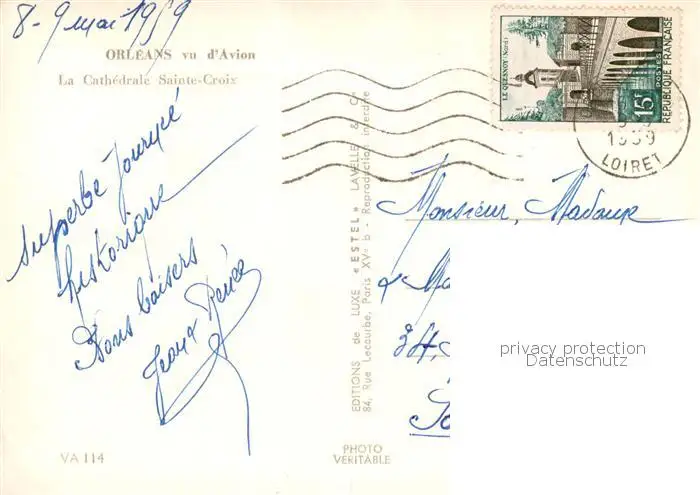 8-9 mai 1959
ORLÉANS vu d'Avion
La Cathédrale Sainte-Croix
Superbe Journée
historique
Bons baisers
Jean & Renée
VA 114
EDITIONS de LUXE "ESTEL" LAVELLE & Cie
84, Rue Lecourbe, Paris XVe b - Reproduction interdite
PHOTO
VERITABLE
LE QUESNOY (Nord)
15F
POSTES
RÉPUBLIQUE FRANÇAISE
1959
LOIRET
Monsieur, Madame
&
34,
privacy protection
Datenschutz